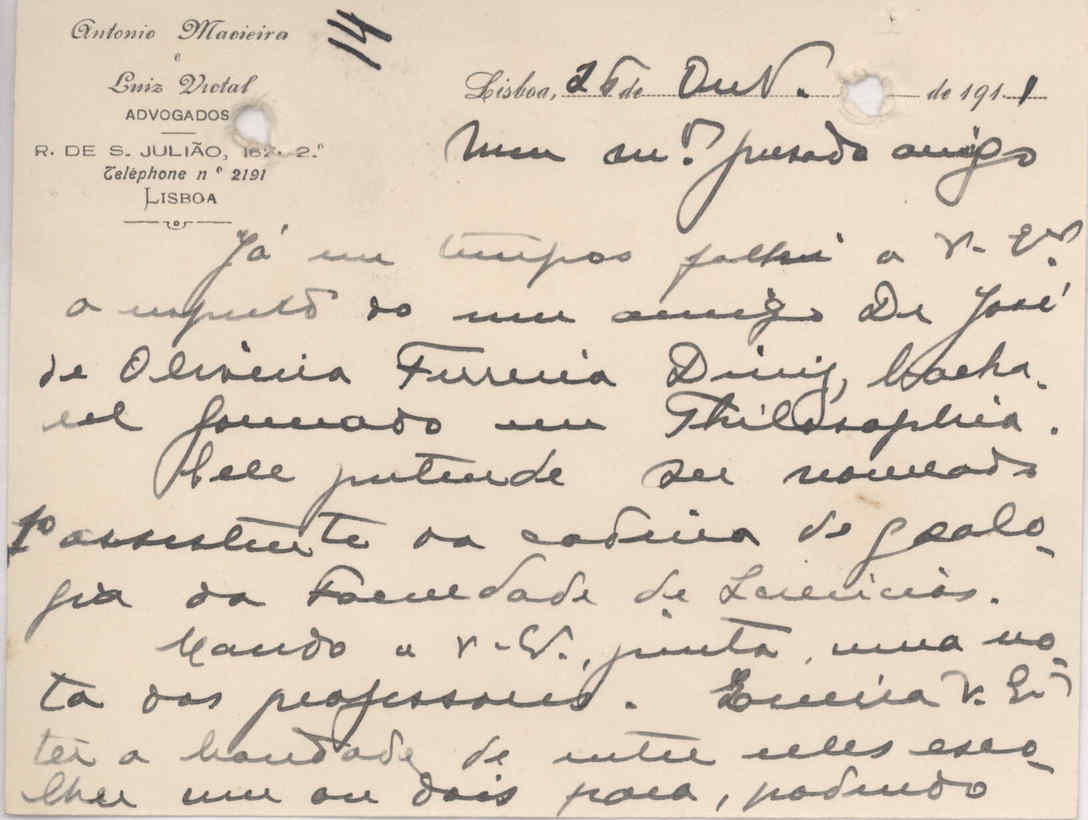 Antonio Macieira
e
Luiz Victal
ADVOGADOS
R. DE S. JULIÃO, 2.º
Teléphone n.º 2191
LISBOA
14
Lisboa, 25 de Out. de 1911
Meu m.to presado amigo
Já em tempos fallei a V. Ex.ª
a respeito do meu amigo Dr José
de Oliveira Ferreira Diniz, bacha-
rel formado em Philosophia.
Elle pretende ser nomeado
1º assistente da cadeira de geolo-
gia da Faculdade de Sciencias.
Mando a V. Ex., junta, uma no-
ta dos professores. Queira V. Ex.ª
ter a bondade de entre elles esco-
lher um ou dois para, podendo